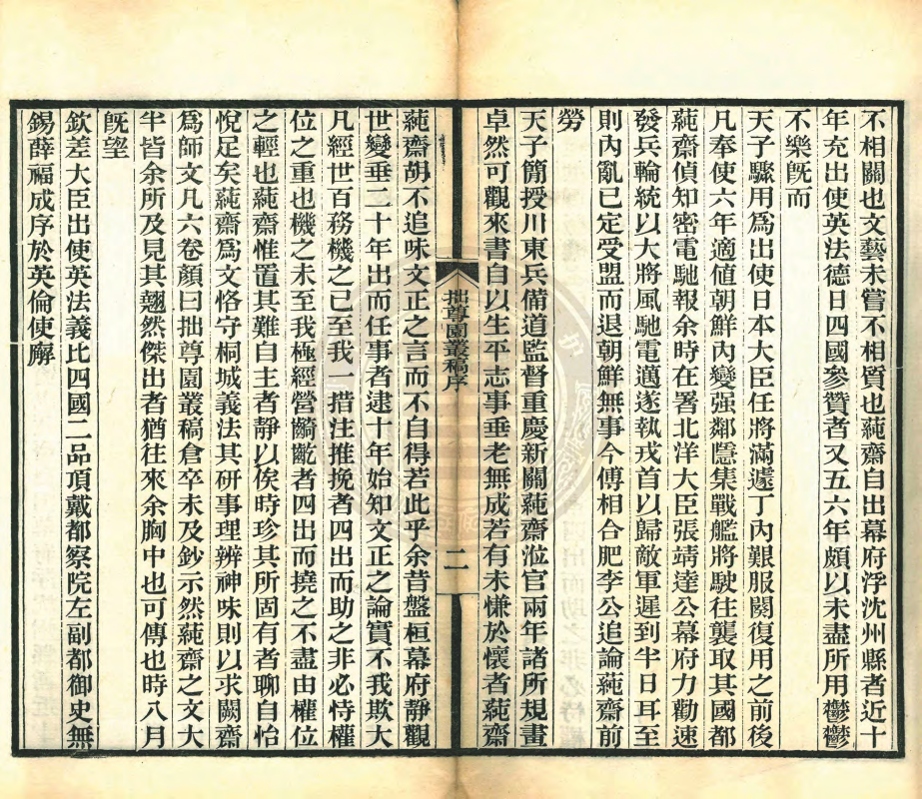 不相關也文藝未嘗不相質也蒓齋自出幕府浮沈州縣者近十
年充出使英法德日四國參贊者又五六年頗以未盡所用鬱鬱
不樂旣而
天子驟用為出使日本大臣任將滿遽丁內艱服闋復用之前後
凡奉使六年適值朝鮮內變强鄰隱集戰艦將駛往襲取其國都
蒓齋偵知密電馳報余時在署北洋大臣張靖達公幕府力勸速
發兵輪統以大將風馳電邁遂執戎首以歸敵軍遲到半日耳至
則內亂已定受盟而退朝鮮無事今傅相合肥李公追論蒓齋前
勞
天子簡授川東兵備道監督重慶新關蒓齋涖官兩年諸所規畫
卓然可觀來書自以生平志事垂老無成若有未慊於懷者蒓齋
拙尊園叢稿序
二
蒓齋胡不追味文正之言而不自得若此乎余昔盤桓幕府靜觀
世變垂二十年出而任事者逮十年始知文正之論實不我欺大
凡經世百務機之已至我一措注推挽者四出而助之非必恃權
位之重也機之未至我極經營齮齕者四出而撓之不盡由權位
之輕也蒓齋惟置其難自主者靜以俟時珍其所固有者聊自怡
悅足矣蒓齋為文恪守桐城義法其研事理辨神味則以求闕齋
為師文凡六卷顏曰拙尊園叢稿倉卒未及鈔示然蒓齋之文大
半皆余所及見其翹然傑出者猶往來余胸中也可傳也時八月
旣望
欽差大臣出使英法義比四國二品頂戴都察院左副都御史無
錫薛福成序於英倫使廨